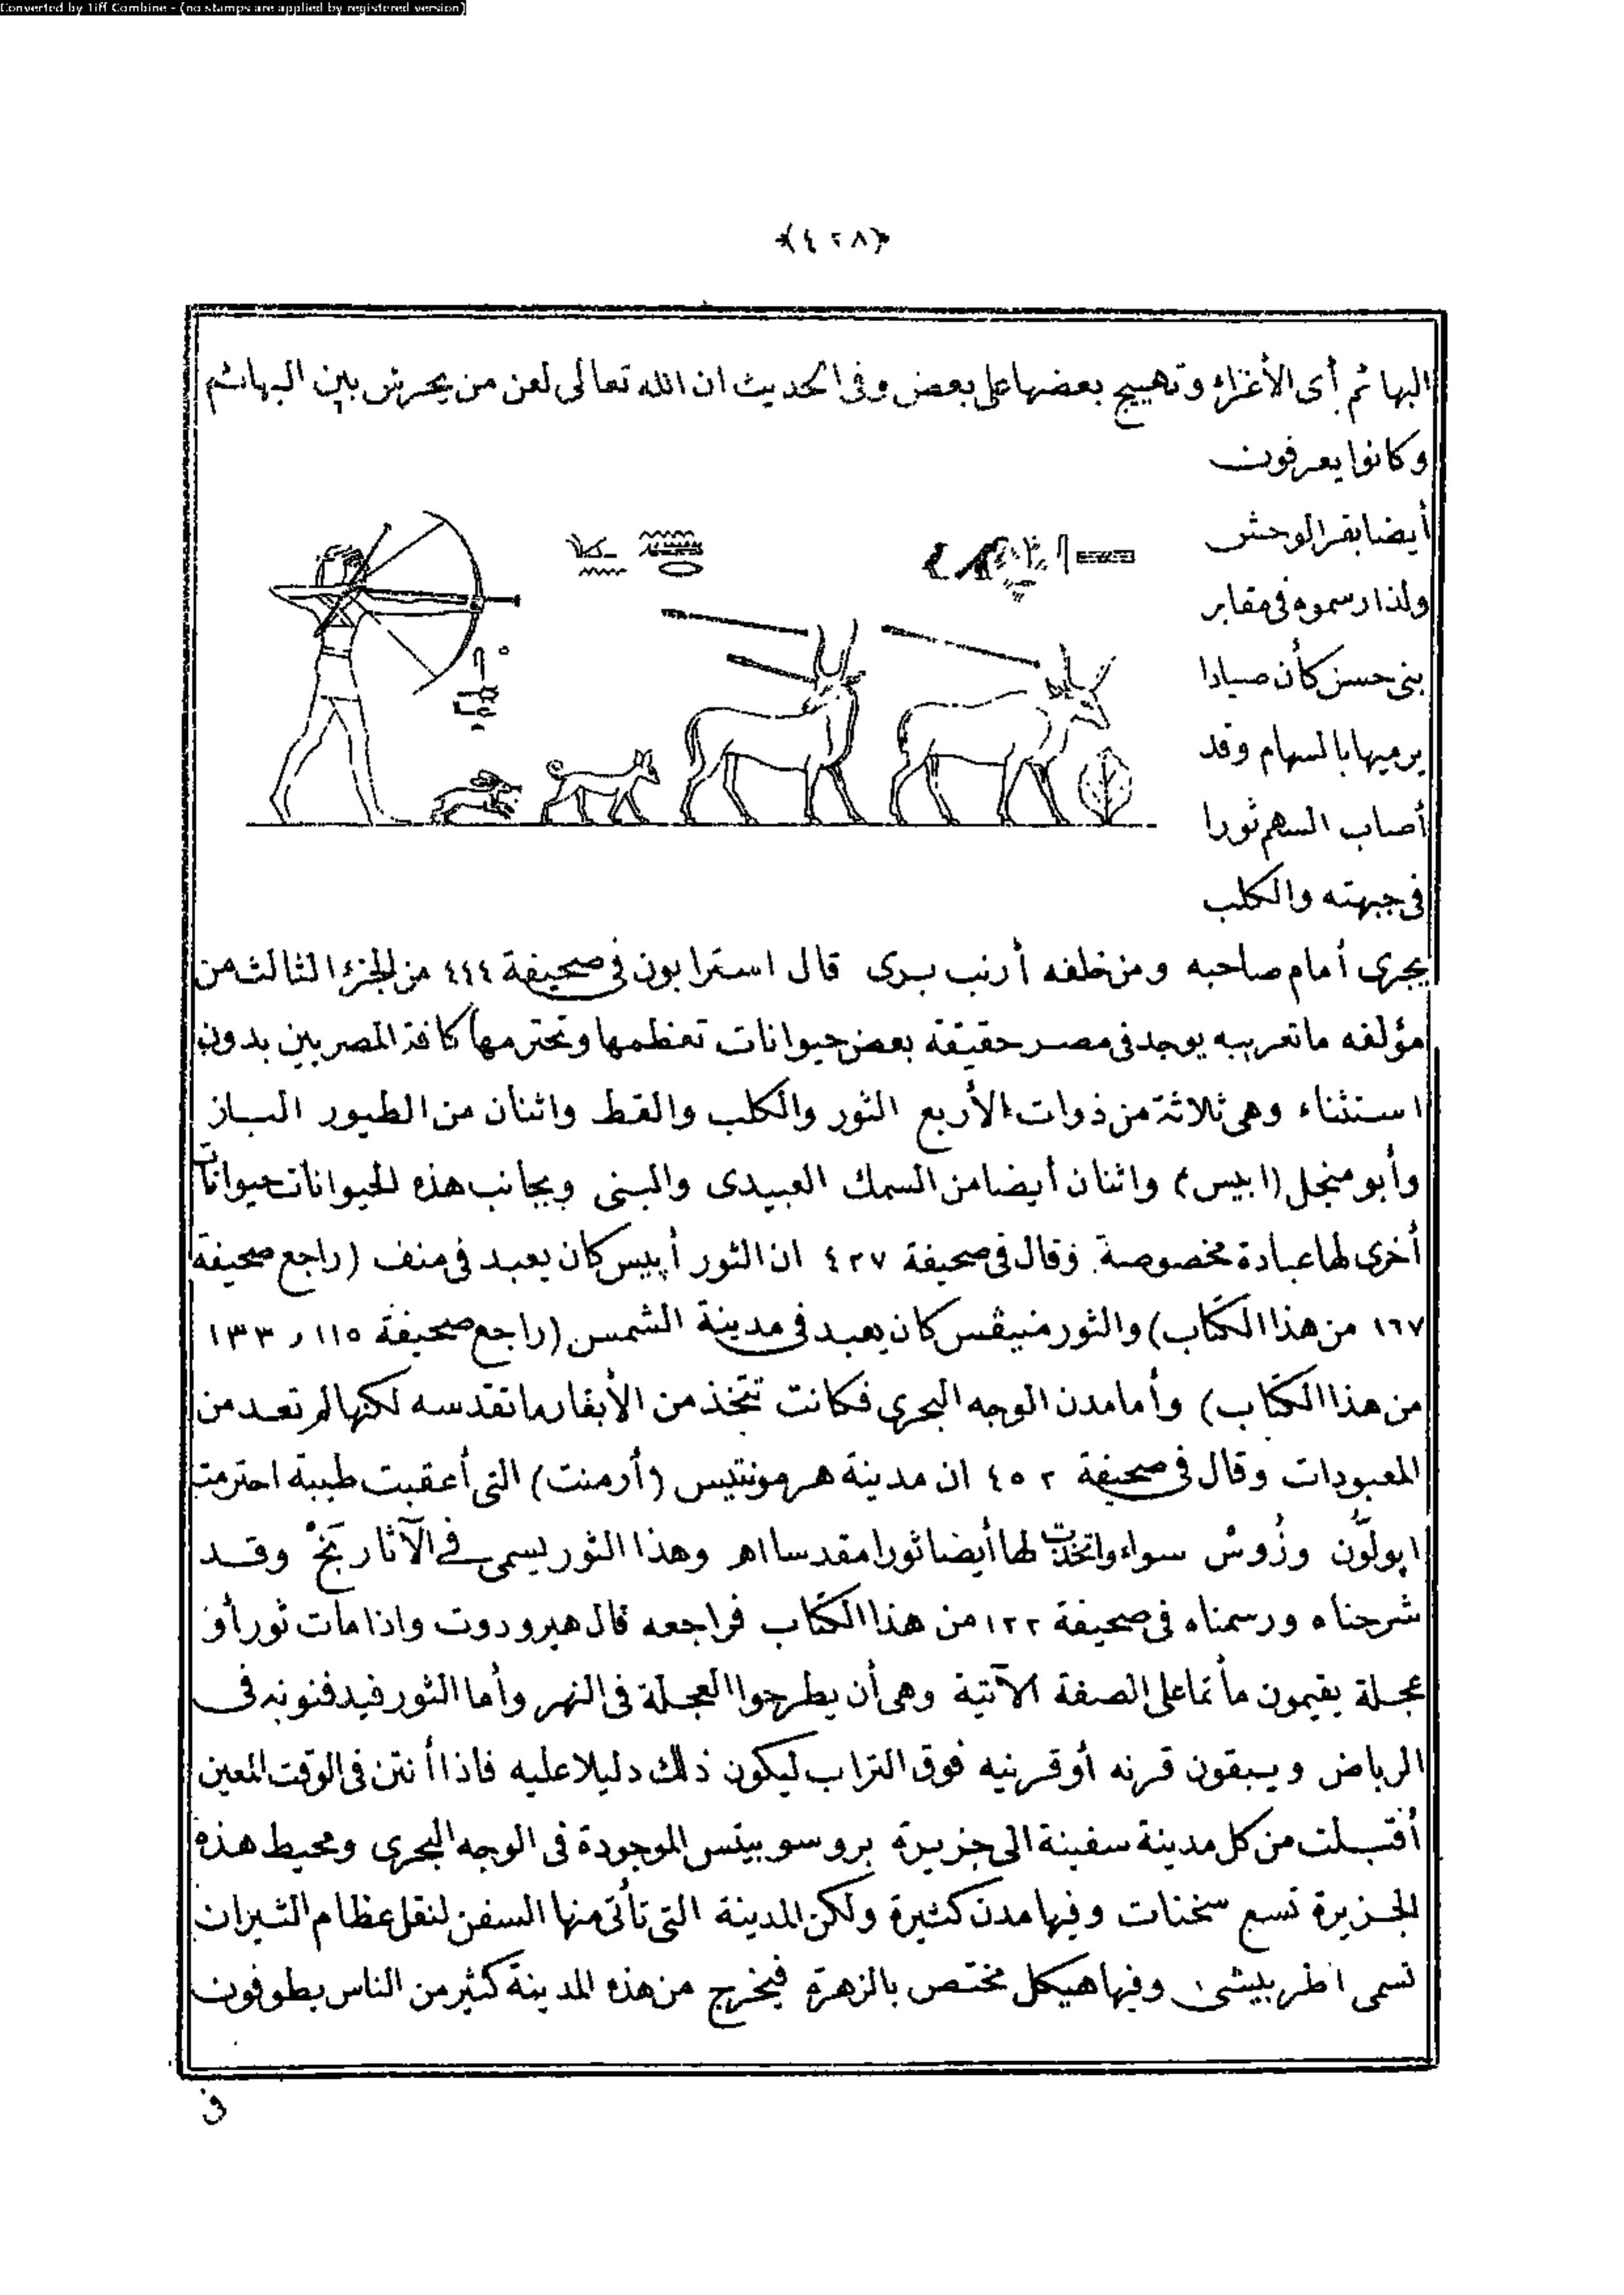 Converted by Tiff Combine - (no stamps are applied by registered version)
﴿٤٢٨﴾
البهائم أى الأغراء وتهييج بعضها على بعض وفى الحديث ان الله تعالى لعن من يحرش بين البهائم
وكانوا يعرفون
أيضا بقر الوحش
ولذا رسموه فى مقابر
بنى حسن كأن صيادا
يرميها بالسهام وقد
أصاب السهم ثورا
فى جبهته والكلب
يجرى أمام صاحبه ومن خلفه أرنب برى قال استرابون فى صحيفة ٤١٤ من الجزء الثالث من
مؤلفه ما تعريبه يوجد فى مصر حقيقة بعض حيوانات تعظمها وتحترمها كافة المصريين بدون
استثناء وهى ثلاثة من ذوات الأربع الثور والكلب والقط واثنان من الطيور الباز
وأبو منجل (ابيس) واثنان أيضا من السمك العبيدى والبنى وبجانب هذه الحيوانات حيوانات
أخرى لها عبادة مخصوصة وقال فى صحيفة ٤٢٧ ان الثور أپيس كان يعبد فى منف (راجع صحيفة
١٦٧ من هذا الكتاب) والثور منيڤس كان يعبد فى مدينة الشمس (راجع صحيفة ١١٥ و ١٣٣
من هذا الكتاب) وأما مدن الوجه البحرى فكانت تتخذ من الأبقار ما تقدسه لكنها لم تعد من
المعبودات وقال فى صحيفة ٤٥٢ ان مدينة هرمونتيس (أرمنت) التى أعقبت طيبة احترمت
اپولّون وزُوسْ سواء واتخذت لها أيضا ثورا مقدسا اهـ وهذا الثور يسمى فى الآثار بَخْ وقد
شرحناه ورسمناه فى صحيفة ١٢٢ من هذا الكتاب فراجعه قال هيرودوت واذا مات ثور أو
عجلة يقيمون مأتما على الصفة الآتية وهى أن يطرحوا العجلة فى النهر وأما الثور فيدفنونه فى
الرياض ويبقون قرنه أو قرنيه فوق التراب ليكون ذلك دليلا عليه فاذا أنتن فى الوقت المعين
أقبلت من كل مدينة سفينة الى جزيرة بروسوبيتس الموجودة فى الوجه البحرى ومحيط هذه
الجزيرة تسع سخنات وفيها مدن كثيرة ولكن المدينة التى تأتى منها السفن لنقل عظام الثيران
تسمى اطربيشى وفيها هيكل مختص بالزهرة فيخرج من هذه المدينة كثير من الناس يطوفون
فى